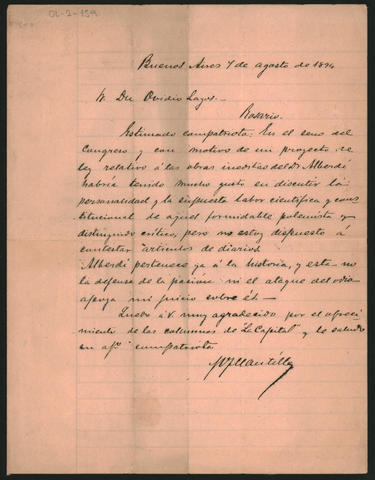 OL-2-159
Buenos Aires 7 de agosto de 1894
Dr Ovidio Lagos.-
Rosario.
Estimado compatriota: En el seno del
Congreso y con motivo de un proyecto de
ley relativo á las obras ineditas del Dr Alberdi
habria tenido mucho gusto en discutir la
personalidad y la supuesta labor cientifica y cons
titucional de aquel formidable polemista y
distinguido critico, pero no estoy dispuesto á
contestar articulos de diarios.
Alberdi pertenece ya á la historia, y esta no
la defensa de la pasion ni el ataque del odio
apoya mi juicio sobre él.-
Quedo á V. muy agradecido por el ofreci-
miento de las columnas de "La Capital" y le saluda
su afº compatriota
Mantilla